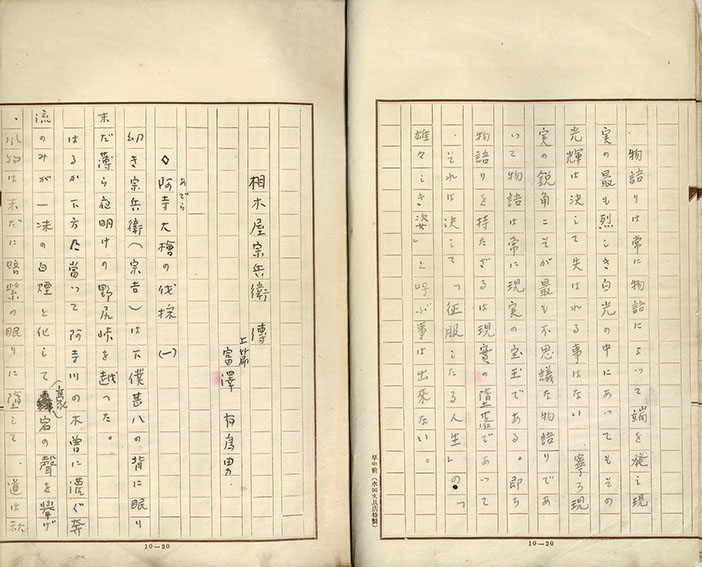 物語りは常に物語によって端を発し現
実の最も烈しき白光の中にあってもその
光輝は決して失はれる事はない　寧ろ現
実の鋭角こそが最も不思議な物語りであ
いて物語は常に現実の宝玉である。即ち
物語りを持たざるは現實の墮落であって
それは決して「征服したる人生」の「
雄々しき姿」と呼ぶ事は出来ない。
10—20
相木屋宗兵衛傳
上篇
富澤 有為男
◇阿寺大檜の伐採 (一)
あでら
幼き宗兵衛(宗吉)は下僕甚八の背に眠り
未だ薄ら夜明けの野尻峠を越った。
はるか下方に當って阿寺川の木曽に濃ぐ奔
流のみが一沫の白煙と化して宮の聲を擧げ
物は未だに暗紫の眠りに墮して、道は秋
10—20